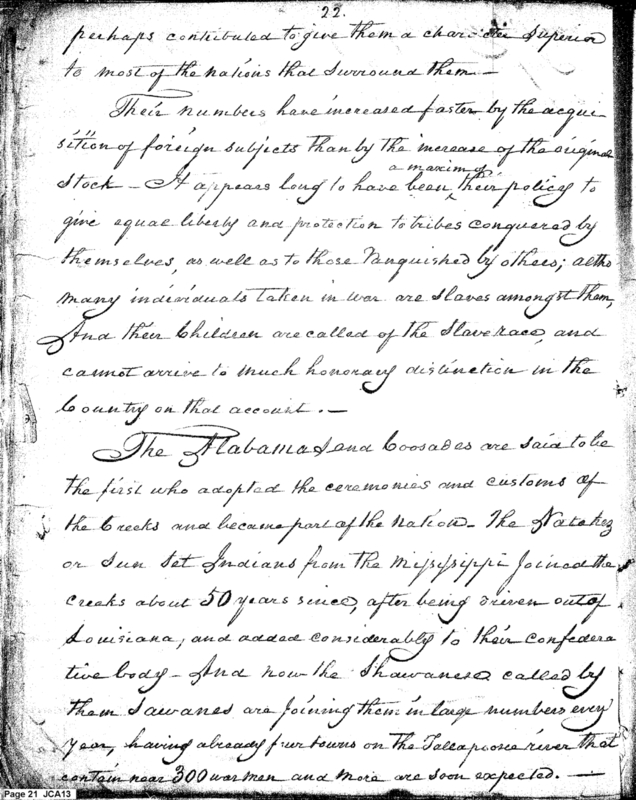 22.
perhaps contributed to give them a character superior
to most of the nations that surround them —
Their numbers have increased faster by the acqui-
sition of foreign subjects than by the increase of the original
stock — It appears long to have been a maxim of their policy to
give equal liberty and protection to tribes conquered by
themselves, as well as to those Vanquished by others; altho
many individuals taken in war are Slaves amongst them,
And their Children are called of the Slave race, and
cannot arrive to much honorary distinction in the
Country on that account. —
The Alabamas and Coosades are said to be
the first who adopted the ceremonies and customs of
the Creeks and became part of the nation — The Natchez
or Sun Set Indians from the Missysippi Joined the
Creeks about 50 years since, after being driven out of
Louisiana, and added considerably to their confedera
tive body — And now the Shawanese called by
them Sawanes are Joining them in large numbers every
year, having already four towns on the Tallapoosie river that
contain near 300 war men and more are soon expected. —
Page 21 JCA13